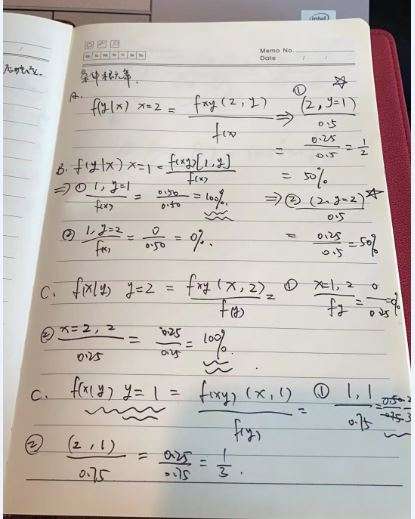 intel
Memo No.
Date / /
A. f(y|x) x=2 = fxy(2, y) / f(x) ⇒ ① (2, y=1) / 0.5
= 0.25 / 0.5 = 1/2
= 50%
B. f(y|x) x=1 = f(xy)[1, y] / f(x)
⇒ ① 1, y=1 / f(x) = 0.50 / 0.50 = 100%. ⇒ ② (2, y=2) / 0.5
② 1, y=2 / f(x) = 0 / 0.50 = 0%. = 0.25 / 0.5 = 50%
C. f(x|y) y=2 = fxy(x, 2) / f(y) = ① x=1, 2 / fy = 0 / 0.25 = 0%
② x=2, 2 / 0.25 = 0.25 / 0.25 = 100%.
C. f(x|y) y=1 = f(xy)(x, 1) / f(y) = ① 1, 1 / 0.75 =
② (2, 1) / 0.75 = 0.25 / 0.75 = 1/3.